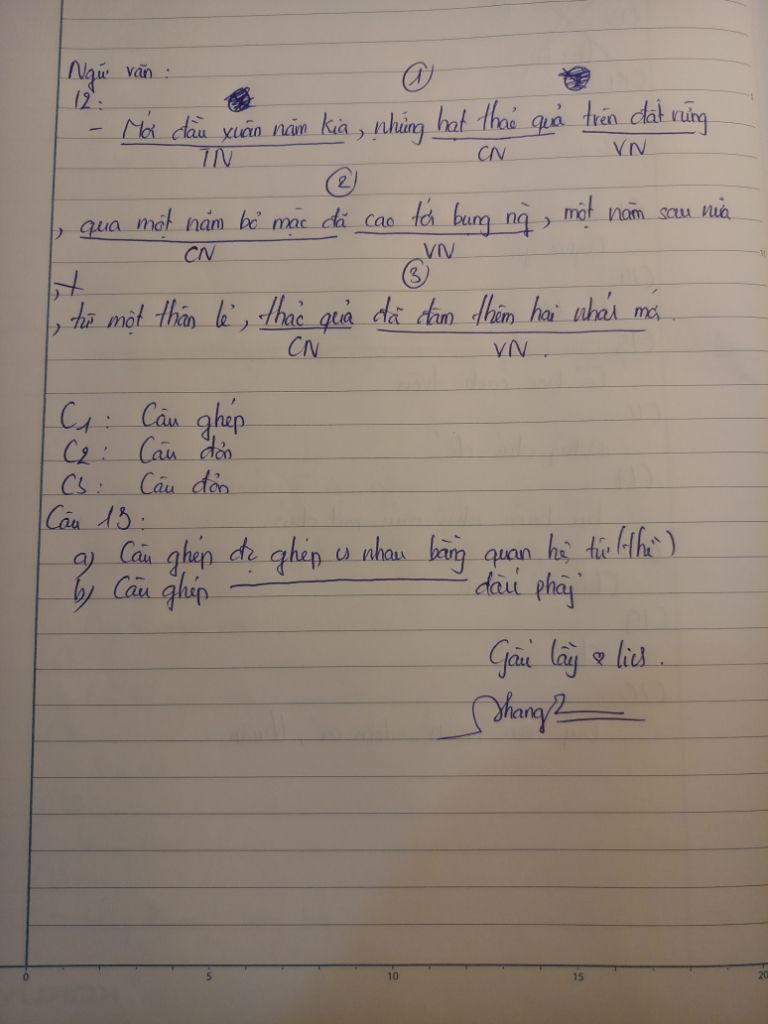 Ngữ văn :
①
12 :
- Mới đầu xuân năm kia, những hạt thảo quả trên đất rừng
TN CN VN
②
, qua một năm bỏ mặc đã cao tới bụng ng, một năm sau nữa
CN VN
③
, từ một thân lẻ, thảo quả đã đâm thêm hai nhánh mới.
CN VN.
C1 : Câu ghép
C2 : Câu đơn
C3 : Câu đơn
Câu 13 :
a) Câu ghép đc ghép vs nhau bằng quan hệ từ (thì)
b) Câu ghép ________ dấu phẩy
0 5 10 15 20